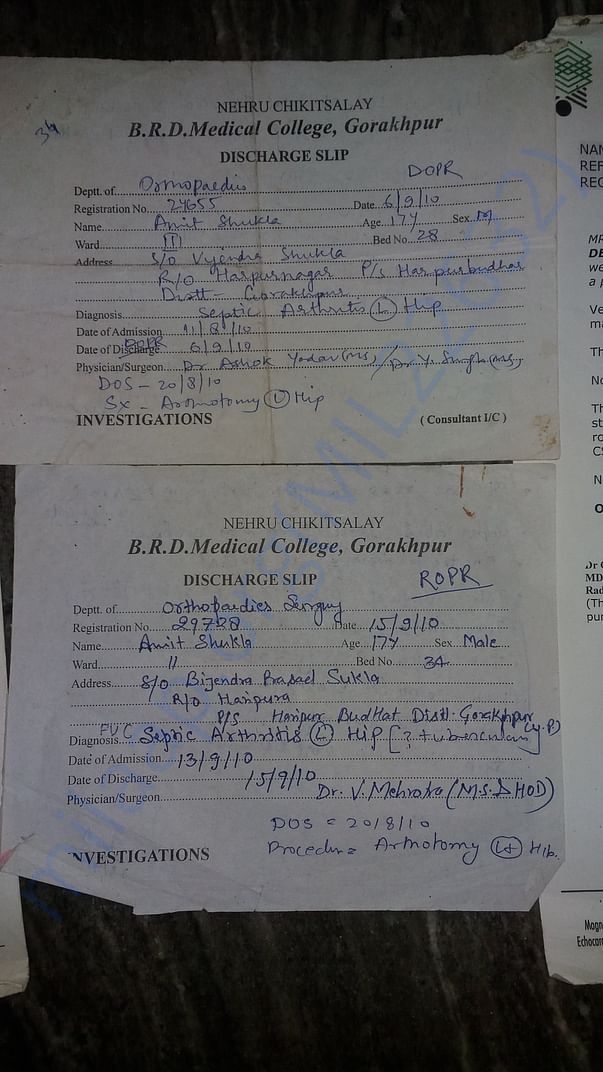 NEHRU CHIKITSALAY
B.R.D.Medical College, Gorakhpur
DISCHARGE SLIP
DOPR
Deptt. of Ormopaedic
Registration No. 24655 Date 6/9/10
Name Amit Shukla Age 17Y Sex M
Ward II Bed No. 28
Address S/o Vijendra Shukla
R/o Harpurnagar P/s Harpurbudhar
Distt- Gorakhpur
Diagnosis Septic Arthritis (L) Hip
Date of Admission 11/8/10
Date of Discharge DOPR 6/9/10
Physician/Surgeon Dr Ashok Yadav (MS) / Dr Y. Singh (MS)
DOS - 20/8/10
Sx - Arthrotomy (L) Hip
INVESTIGATIONS ( Consultant I/C )
NEHRU CHIKITSALAY
B.R.D.Medical College, Gorakhpur
DISCHARGE SLIP
ROPR
Deptt. of Orthopaedics Surgery
Registration No. 29728 Date 15/9/10
Name Amit Shukla Age 17Y Sex Male
Ward 11 Bed No. 34
Address S/o Bijendra Prasad Sukla
R/o Haripura
P/S Haripur Budhat Distt. Gorakhpur (U.P)
Diagnosis FUC Septic Arthritis (L) Hip [? tubercular]
Date of Admission 13/9/10
Date of Discharge 15/9/10
Physician/Surgeon Dr. V. Mehrotra (M.S. & HOD)
DOS = 20/8/10
Procedure = Arthotomy (Lt) Hip.
INVESTIGATIONS
NAM
REF
REG
MR
DE
we
a p
Ve
ma
Th
No
Th
st
ro
CS
N
O
Dr
MD
Rad
(Th
pur
Magn
Echocar